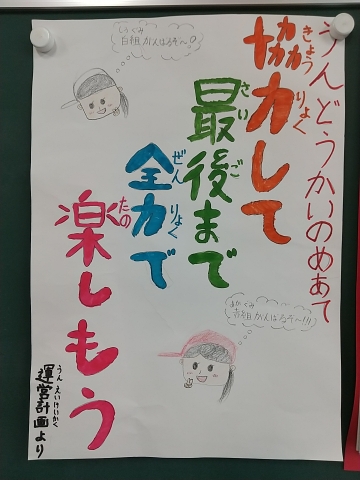 うんどうかいのめあて
協力して
きょうりょく
最後まで
さいご
全力で
ぜんりょく
楽しもう
たの
しろくみ
白組がんばるぞ〜!
あかくみ
赤組がんばるぞ〜!!!
運営計画より
うんえいけいかく